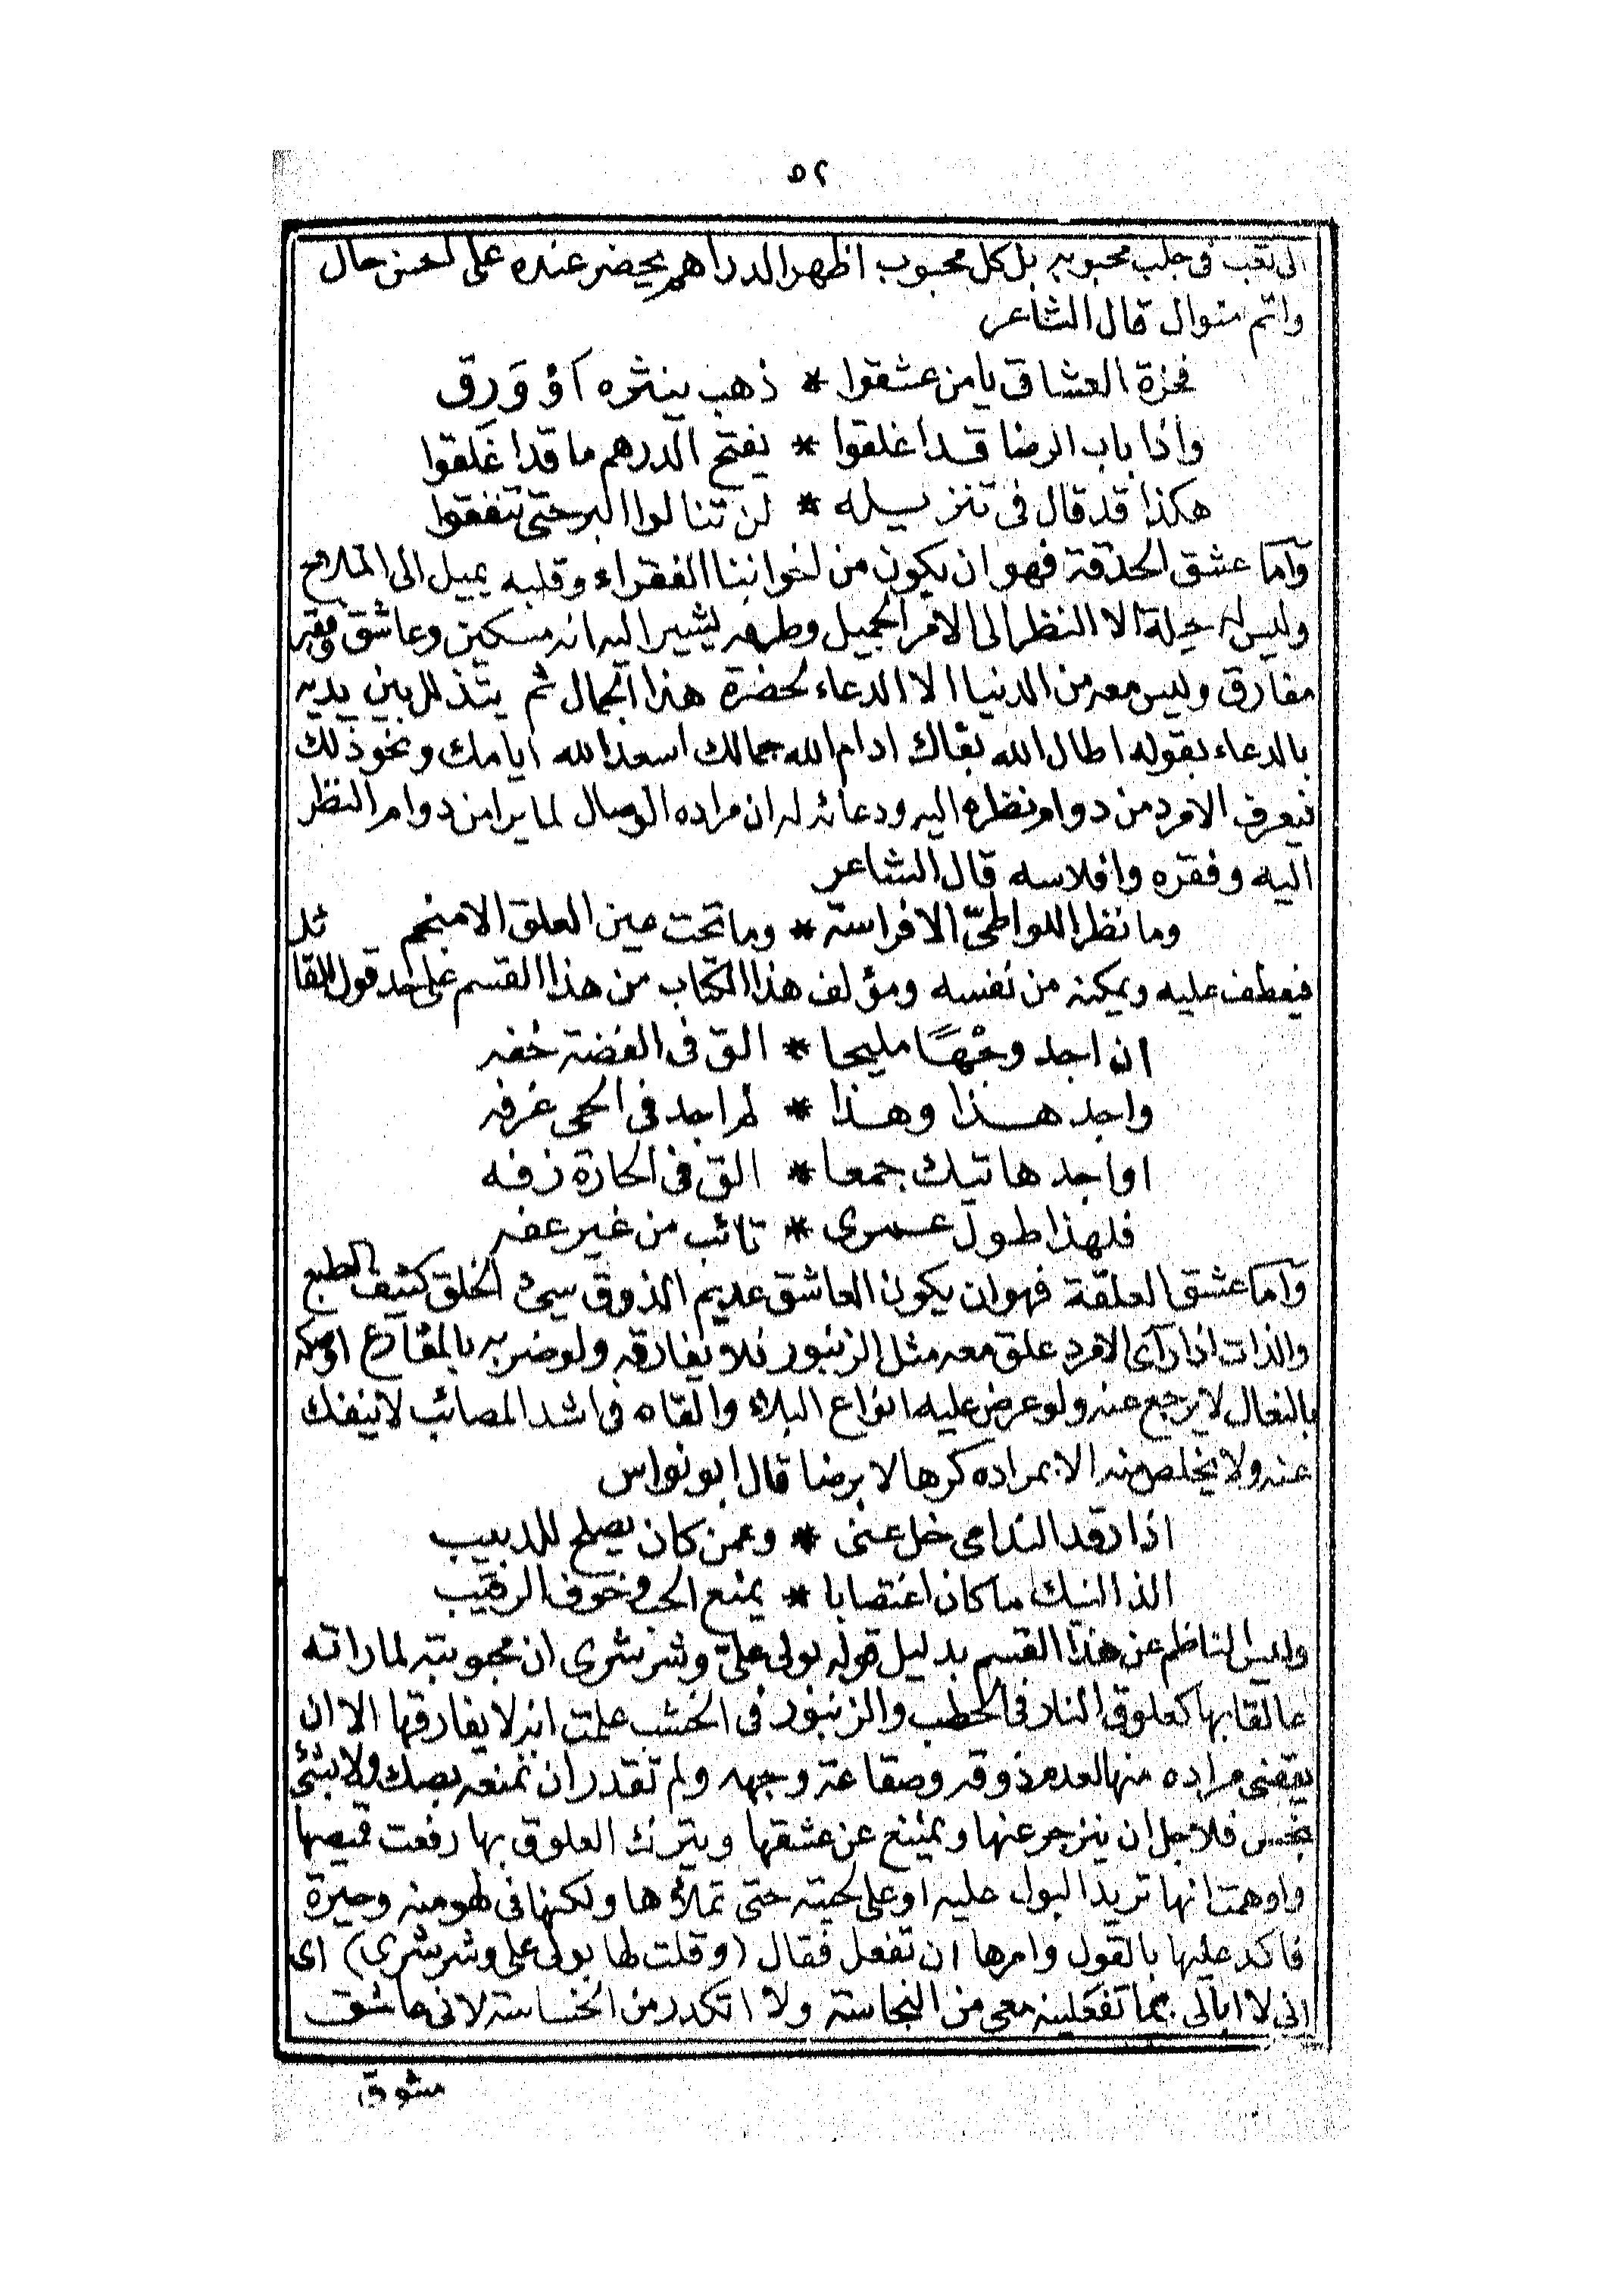 ٥٢
الى تعب فى جلب محبوبه بل كل محبوب اظهر الدراهم يحضر عنده على احسن حال
واتم منوال قال الشاعر
العشاق يا من عشقوا * ذهب ينثره أو وَرِق
واذا باب الرضا قد اغلقوا * يفتح الدرهم ما قد اغلقوا
هكذا قد قال فى تنزيله * لن تنالوا البر حتى تنفقوا
وأما عشق الحدقة فهو ان يكون من اخواننا الفقراء وقلبه يميل الى الملاح
وليس له حيلة الا النظر الى الامر الجميل وطرفه يشير اليه انه مسكين وعاشق فقير
مفارق وليس معه من الدنيا الا الدعاء لحضرة هذا الجمال ثم يتذلل بين يديه
بالدعاء بقوله اطال الله بقاك ادام الله جمالك اسعد الله ايامك ونحو ذلك
فيعرف الامرد من دوام نظره اليه ودعائه له ان مراده الوصال لما يرا من دوام النظر
اليه وفقره وافلاسه قال الشاعر
وما نظر اللواطىّ الا فراسة * وما تحت عين العلق الا منجم
فيعطف عليه ويمكنه من نفسه ومؤلف هذا الكتاب من هذا القسم على احد قول القائل
ان اجد وجْهًا مليحا * الق فى الفضة خفه
واجد هذا وهذا * لم اجد فى الحى غرفه
او اجد هاتيك جمعا * الق فى الحارة زفه
فلهذا طول عمرى * تائب من غير عفه
وأما عشق العلقة فهو ان يكون العاشق عديم الذوق سيئ الخلق كثيف الطبع
والذات اذا رآى الامرد علق معه مثل الزنبور فلا يفارقه ولو ضربه بالمقارع او صكه
بالنعال لا يرجع عنه ولو عرض عليه انواع البلاء والقاه فى اشد المصائب لا ينفك
عنه ولا يخلص منه الا بمراده كرها لا برضا قال ابو نواس
اذا رقد الندامى خل عنى * وعمن كان يصلح للدبيب
الذ النيك ما كان اغتصابا * بمنع الحب وخوف الرقيب
وليس الناظم عن هذا القسم بدليل قوله بولى علىّ وشرشرى ان محبوبته لما راته
عالقا بها كعلوق النار فى الحطب والزنبور فى الخشب علمت انه لا يفارقها الا ان
يقضى مراده منها لعدم ذوقه وصقاعة وجهه ولم تقدر ان تمنعه بصك ولا بشئ
نجس فلاجل ان ينزجر عنها ويمتنع عن عشقها ويترك العلوق بها رفعت قميصها
واوهمت انها تريد البول عليه او على لحيته حتى تملأها ولكنها فى منه وحيرة
فاكد عليها بالقول وامرها ان تفعل فقال (وقلت لها بولى على وشرشرى) اى
انى لا ابالى بما تفعلينه معى من النجاسة ولا اتكدر من الخساسة لانى عاشق
مشوق